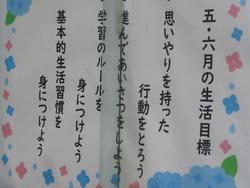 五・六月の生活目標
・思いやりを持った
行動をとろう
進んであいさつをしよう
・学習のルールを
身につけよう
・基本的生活習慣を
身につけよう